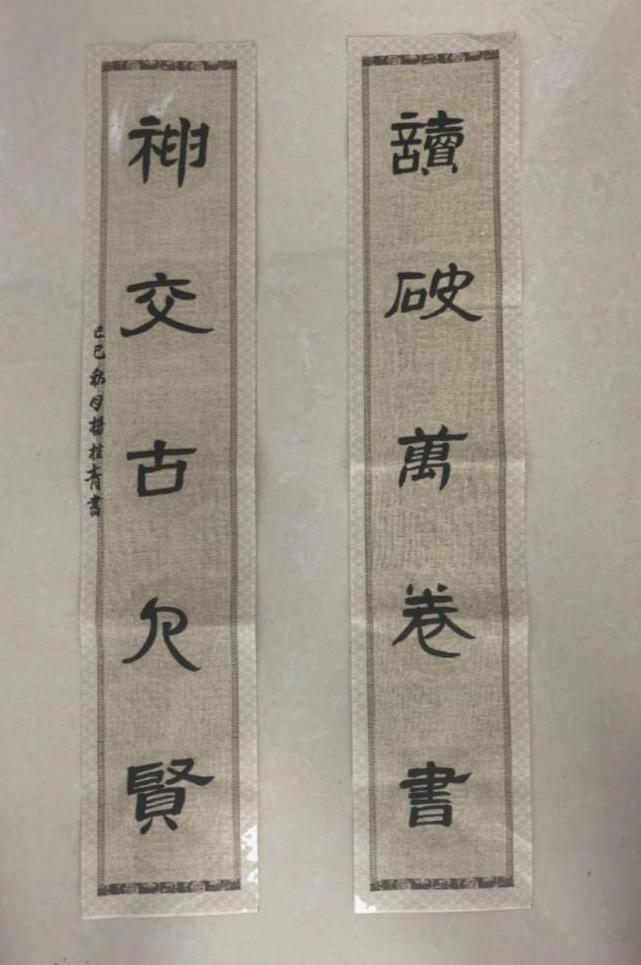 讀破萬卷書
神交古賢
己巳秋月楊桂青書